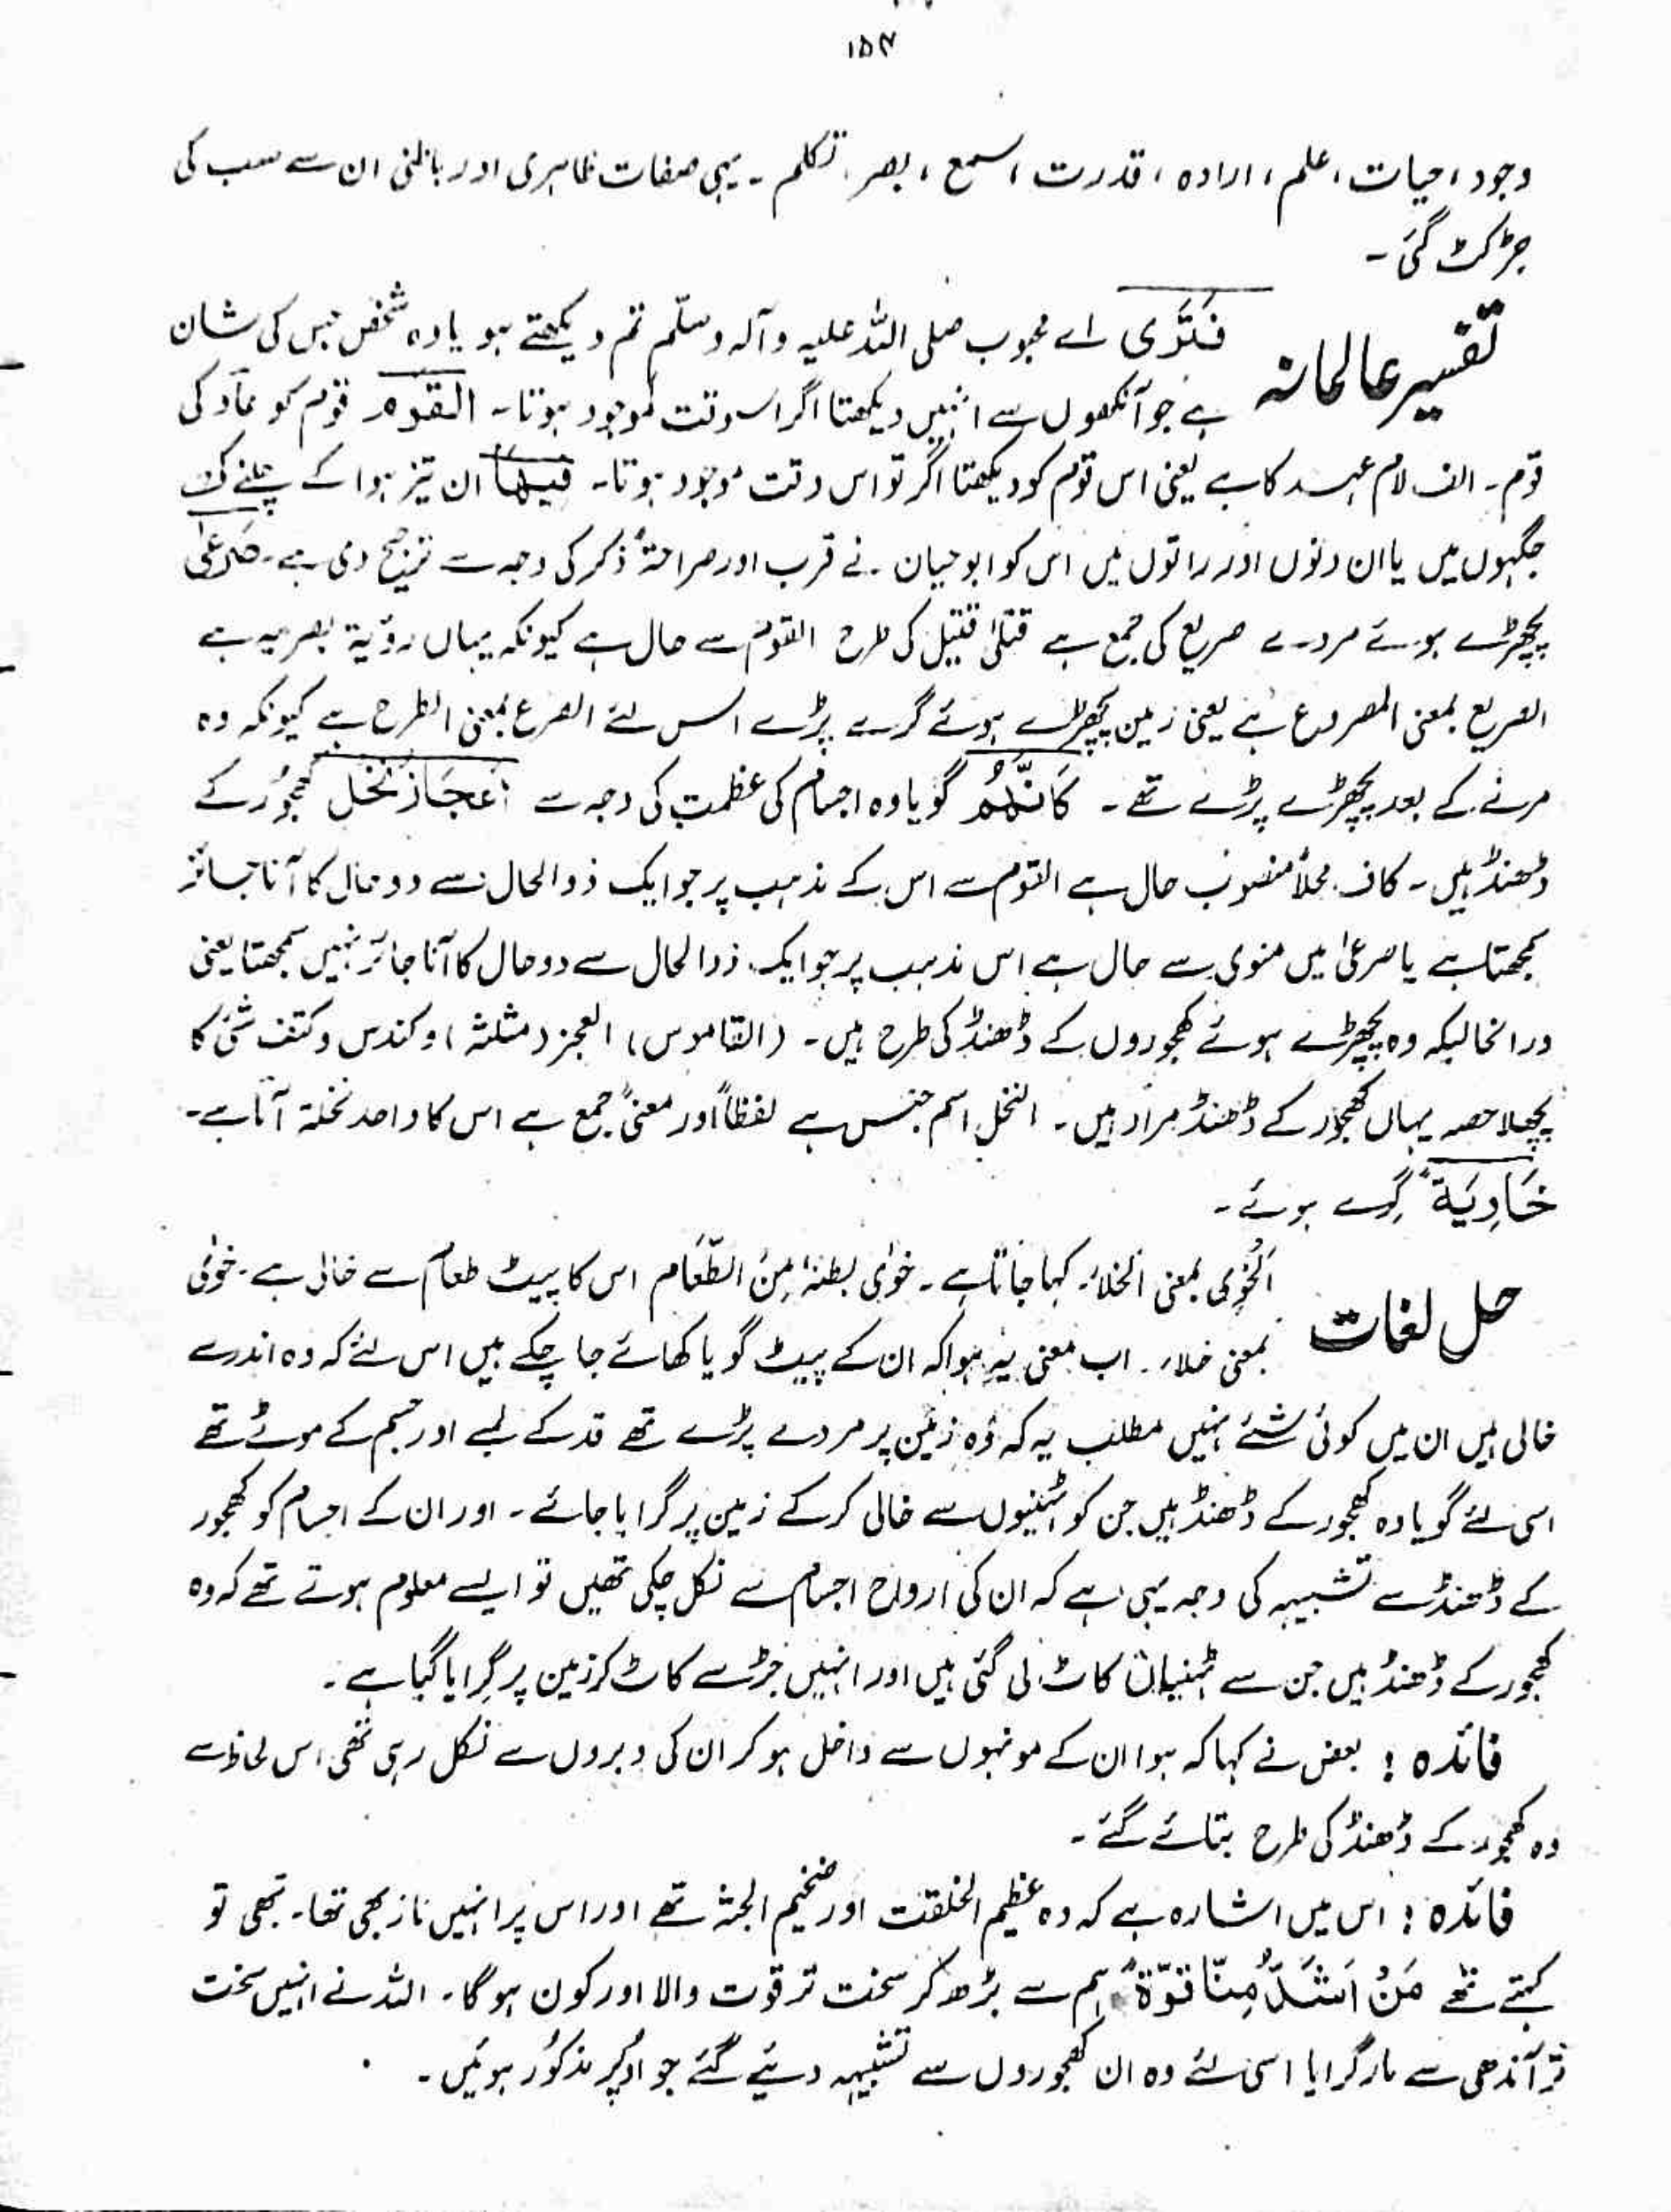 ۱۵۴
وجود، حیات، علم، ارادہ، قدرت، سمع، بصر، تکلم ۔ یہی صفات ظاہری اور باطنی ان سے سب کی
جڑ کٹ گئی ۔
تفسیر عالمانہ
فَتَرَى اے محبوب صلی اللہ علیہ وآلہ وسلّم تم دیکھتے ہو یا وہ شخص جس کی شان
ہے جو آنکھوں سے انہیں دیکھتا اگر اسوقت موجود ہوتا۔ القَوْمَ قوم کو عاد کی
قوم ۔ الف لام عہد کا ہے یعنی اس قوم کو دیکھتا اگر تو اس وقت موجود ہوتا۔ فِيْهَا ان تیز ہوا کے چلنے کی
جگہوں میں یا ان دنوں اور راتوں میں اس کو ابوحیان ۔ نے قرب اور صراحتہً ذکر کی وجہ سے ترجیح دی ہے ۔ صَرْعٰی
پچھڑے ہوئے مردے صریع کی جمع ہے قتلیٰ قتیل کی طرح القوم سے حال ہے کیونکہ یہاں رؤیۃ بصریہ ہے
الصریع بمعنی المصروع ہے یعنی زمین پچھڑے ہوئے گرے پڑے اس لئے الصرع بمعنی الطرح ہے کیونکہ وہ
مرنے کے بعد پچھڑے پڑے تھے ۔ كَاَنَّهُمْ گویا وہ اجسام کی عظمت کی وجہ سے اَعْجَازُ نَخْلٍ کھجور کے
ڈھنڈ ہیں ۔ کاف محلاً منصوب حال ہے القوم سے اس کے مذہب پر جو ایک ذوالحال سے دو حال کا آنا جائز
سمجھتا ہے یا صرعیٰ میں منوی سے حال ہے اس مذہب پر جو ایک ذوالحال سے دو حال کا آنا جائز نہیں سمجھتا یعنی
درانحالیکہ وہ پچھڑے ہوئے کھجوروں کے ڈھنڈ کی طرح ہیں ۔ (القاموس) العجز (مثلثہ) وکندس وکتف شئی کا
پچھلا حصہ یہاں کھجور کے ڈھنڈ مراد ہیں ۔ النخل اسم جنس ہے لفظاً اور معنیً جمع ہے اس کا واحد نخلۃ آتا ہے ۔
خَاوِيَةٍ گرے ہوئے ۔
حل لغات
اَلْخَوٰی بمعنی الخلاء کہا جاتا ہے ۔ خَوٰی بطنہٗ مِنَ الطَّعَام اس کا پیٹ طعام سے خالی ہے ۔ خوٰی
بمعنی خلاء ۔ اب معنی یہ ہوا کہ ان کے پیٹ گویا کھائے جا چکے ہیں اس لئے کہ وہ اندر سے
خالی ہیں ان میں کوئی شئے نہیں مطلب یہ کہ وہ زمین پر مردے پڑے تھے قد کے لمبے اور جسم کے موٹے تھے
اسی لئے گویا وہ کھجور کے ڈھنڈ ہیں جن کو ٹہنیوں سے خالی کر کے زمین پر گرایا جائے ۔ اور ان کے اجسام کو کھجور
کے ڈھنڈ سے تشبیہہ کی وجہ یہی ہے کہ ان کی ارواح اجسام سے نکل چکی تھیں تو ایسے معلوم ہوتے تھے کہ وہ
کھجور کے ڈھنڈ ہیں جن سے ٹہنیاں کاٹ لی گئی ہیں اور انہیں جڑ سے کاٹ کر زمین پر گرایا گیا ہے ۔
فائدہ : بعض نے کہا کہ ہوا ان کے مونہوں سے داخل ہو کر ان کی دبروں سے نکل رہی تھی اس لحاظ سے
وہ کھجور کے ڈھنڈ کی طرح بتائے گئے ۔
فائدہ : اس میں اشارہ ہے کہ وہ عظیم الخلقت اور ضخیم الجثہ تھے اور اس پر انہیں ناز بھی تھا ۔ تبھی تو
کہتے تھے مَنْ اَشَدُّ مِنَّا قُوَّةً ہم سے بڑھ کر سخت تر قوت والا اور کون ہو گا ۔ اللہ نے انہیں سخت
تر آندھی سے مار گرایا اسی لئے وہ ان کھجوروں سے تشبیہہ دیئے گئے جو اوپر مذکور ہوئیں ۔